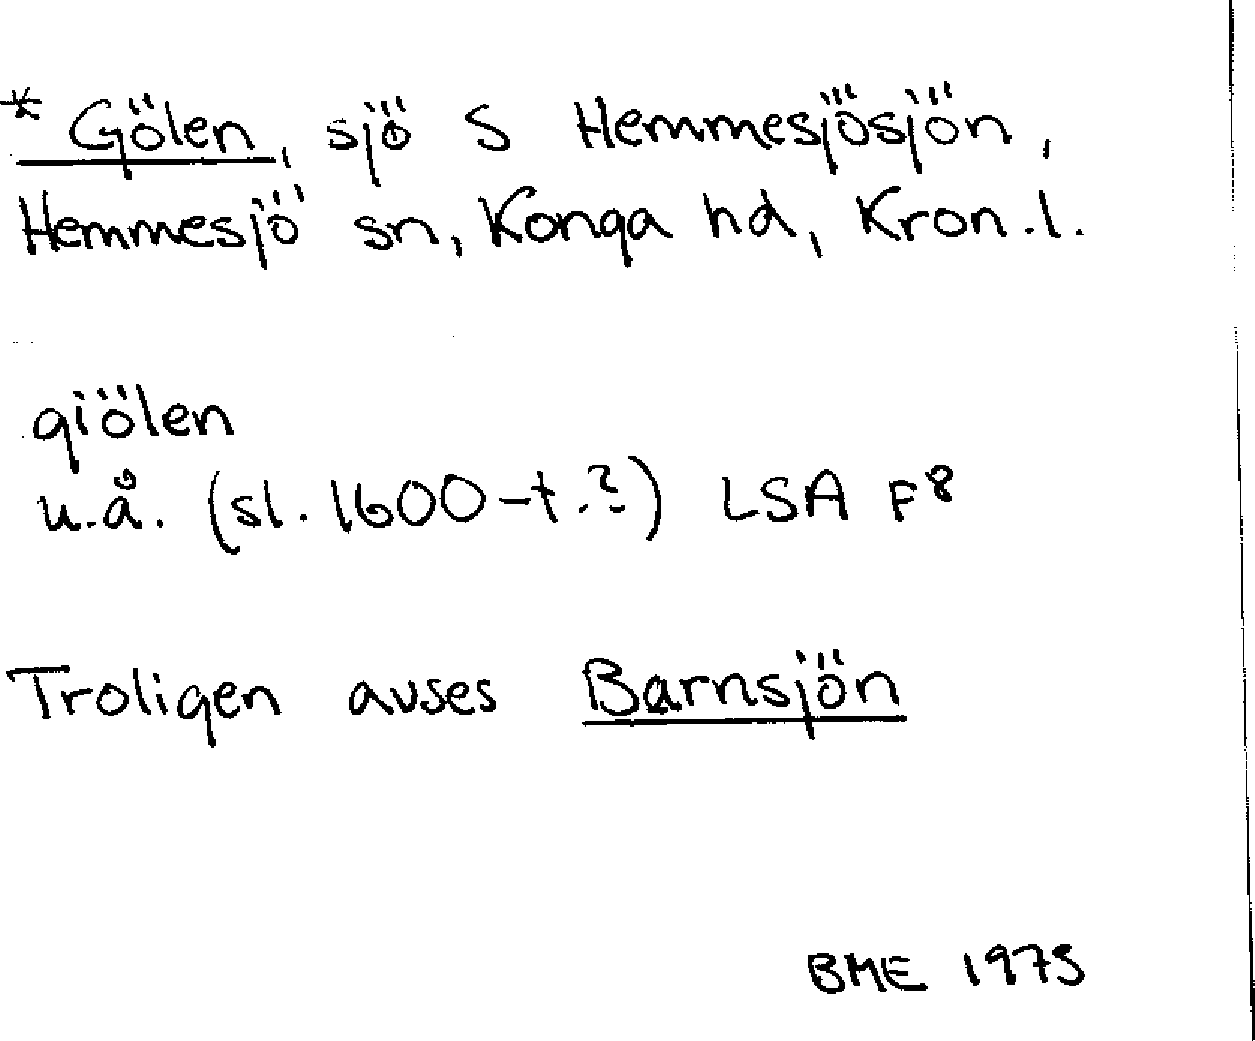 * Gölen, sjö S Hemmesjösjön,
Hemmesjö sn, Konga hd, Kron.l.
giölen
u.å. (sl. 1600-t.?) LSA F8
Troligen avses Barnsjön
BME 1975